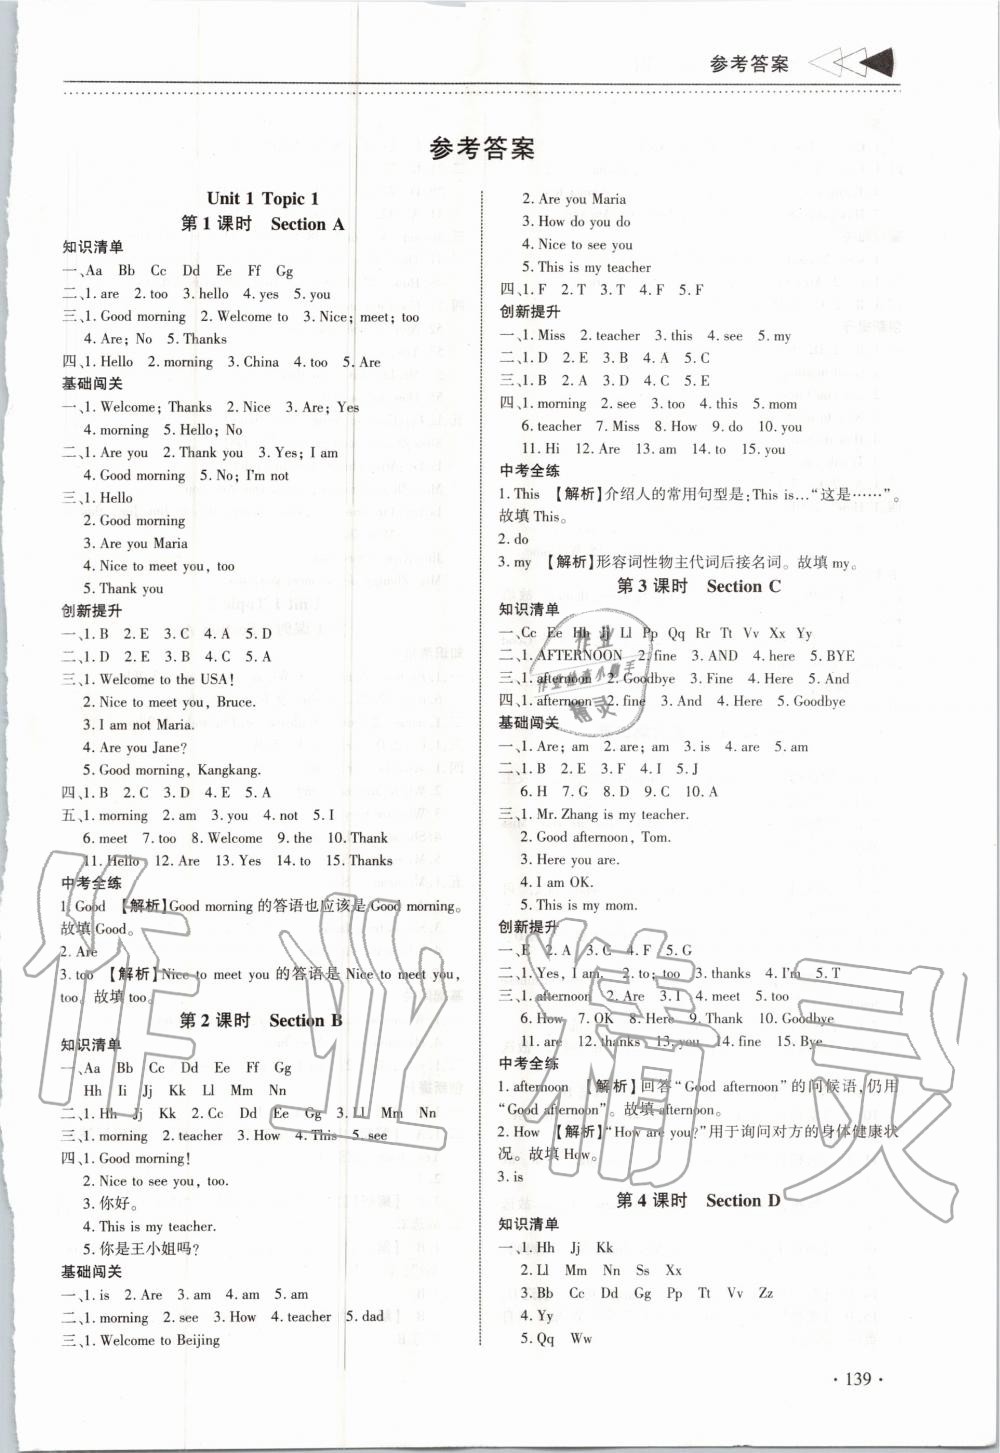 参考答案
参考答案
Unit 1 Topic 1
第 1 课时 Section A
知识清单
一、Aa Bb Cc Dd Ee Ff Gg
二、1. are 2. too 3. hello 4. yes 5. you
三、1. Good morning 2. Welcome to 3. Nice; meet; too
4. Are; No 5. Thanks
四、1. Hello 2. morning 3. China 4. too 5. Are
基础闯关
一、1. Welcome; Thanks 2. Nice 3. Are; Yes
4. morning 5. Hello; No
二、1. Are you 2. Thank you 3. Yes; I am
4. Good morning 5. No; I'm not
三、1. Hello
2. Good morning
3. Are you Maria
4. Nice to meet you, too
5. Thank you
创新提升
一、1. B 2. E 3. C 4. A 5. D
二、1. D 2. E 3. B 4. C 5. A
三、1. Welcome to the USA!
2. Nice to meet you, Bruce.
3. I am not Maria.
4. Are you Jane?
5. Good morning, Kangkang.
四、1. B 2. C 3. D 4. E 5. A
五、1. morning 2. am 3. you 4. not 5. I
6. meet 7. too 8. Welcome 9. the 10. Thank
11. Hello 12. Are 13. Yes 14. to 15. Thanks
中考全练
1. Good 【解析】Good morning 的答语也应该是 Good morning。
故填 Good。
2. Are
3. too 【解析】Nice to meet you 的答语是 Nice to meet you,
too。故填 too。
第 2 课时 Section B
知识清单
一、Aa Bb Cc Dd Ee Ff Gg
Hh Ii Jj Kk Ll Mm Nn
二、1. Hh Jj Kk 2. Cc Dd Ee Gg 3. Ll Mm Nn
三、1. morning 2. teacher 3. How 4. This 5. see
四、1. Good morning!
2. Nice to see you, too.
3. 你好。
4. This is my teacher.
5. 你是王小姐吗?
基础闯关
一、1. is 2. Are 3. am 4. am 5. am
二、1. morning 2. see 3. How 4. teacher 5. dad
三、1. Welcome to Beijing
2. Are you Maria
3. How do you do
4. Nice to see you
5. This is my teacher
四、1. F 2. T 3. T 4. F 5. F
创新提升
一、1. Miss 2. teacher 3. this 4. see 5. my
二、1. D 2. E 3. B 4. A 5. C
三、1. B 2. A 3. D 4. C 5. E
四、1. morning 2. see 3. too 4. this 5. mom
6. teacher 7. Miss 8. How 9. do 10. you
11. Hi 12. Are 13. am 14. to 15. you
中考全练
1. This 【解析】介绍人的常用句型是:This is…“这是……”。
故填 This。
2. do
3. my 【解析】形容词性物主代词后接名词。故填 my。
第 3 课时 Section C
知识清单
一、Cc Ee Hh Jj Ll Pp Qq Rr Tt Uu Vv Xx Yy
二、1. AFTERNOON 2. fine 3. AND 4. here 5. BYE
三、1. afternoon 2. Goodbye 3. Fine 4. Here 5. And
四、1. afternoon 2. fine 3. And 4. Here 5. Goodbye
基础闯关
一、1. Are; am 2. are; am 3. is 4. are 5. am
二、1. B 2. E 3. F 4. I 5. J
6. H 7. G 8. D 9. C 10. A
三、1. Mr. Zhang is my teacher.
2. Good afternoon, Tom.
3. Here you are.
4. I am OK.
5. This is my mom.
创新提升
一、E 2. A 3. C 4. F 5. G
二、1. Yes, I am. 2. to; too 3. thanks 4. I'm 5. T
三、1. afternoon 2. Are 3. I 4. meet 5. too
6. How 7. OK 8. Here 9. And 10. Goodbye
11. are 12. thanks 13. you 14. fine 15. Bye
中考全练
1. afternoon 【解析】回答“Good afternoon”的问候语,仍用
“Good afternoon”。故填 afternoon。
2. How 【解析】“How are you?”用于询问对方的身体健康状
况。故填 How。
3. is
第 4 课时 Section D
知识清单
一、1. Hh Jj Kk
2. Ll Mm Nn Ss Xx
3. Bb Cc Dd Gg Pp Tt Vv Zz
4. Yy
5. Qq Ww
· 139 ·
作业精灵